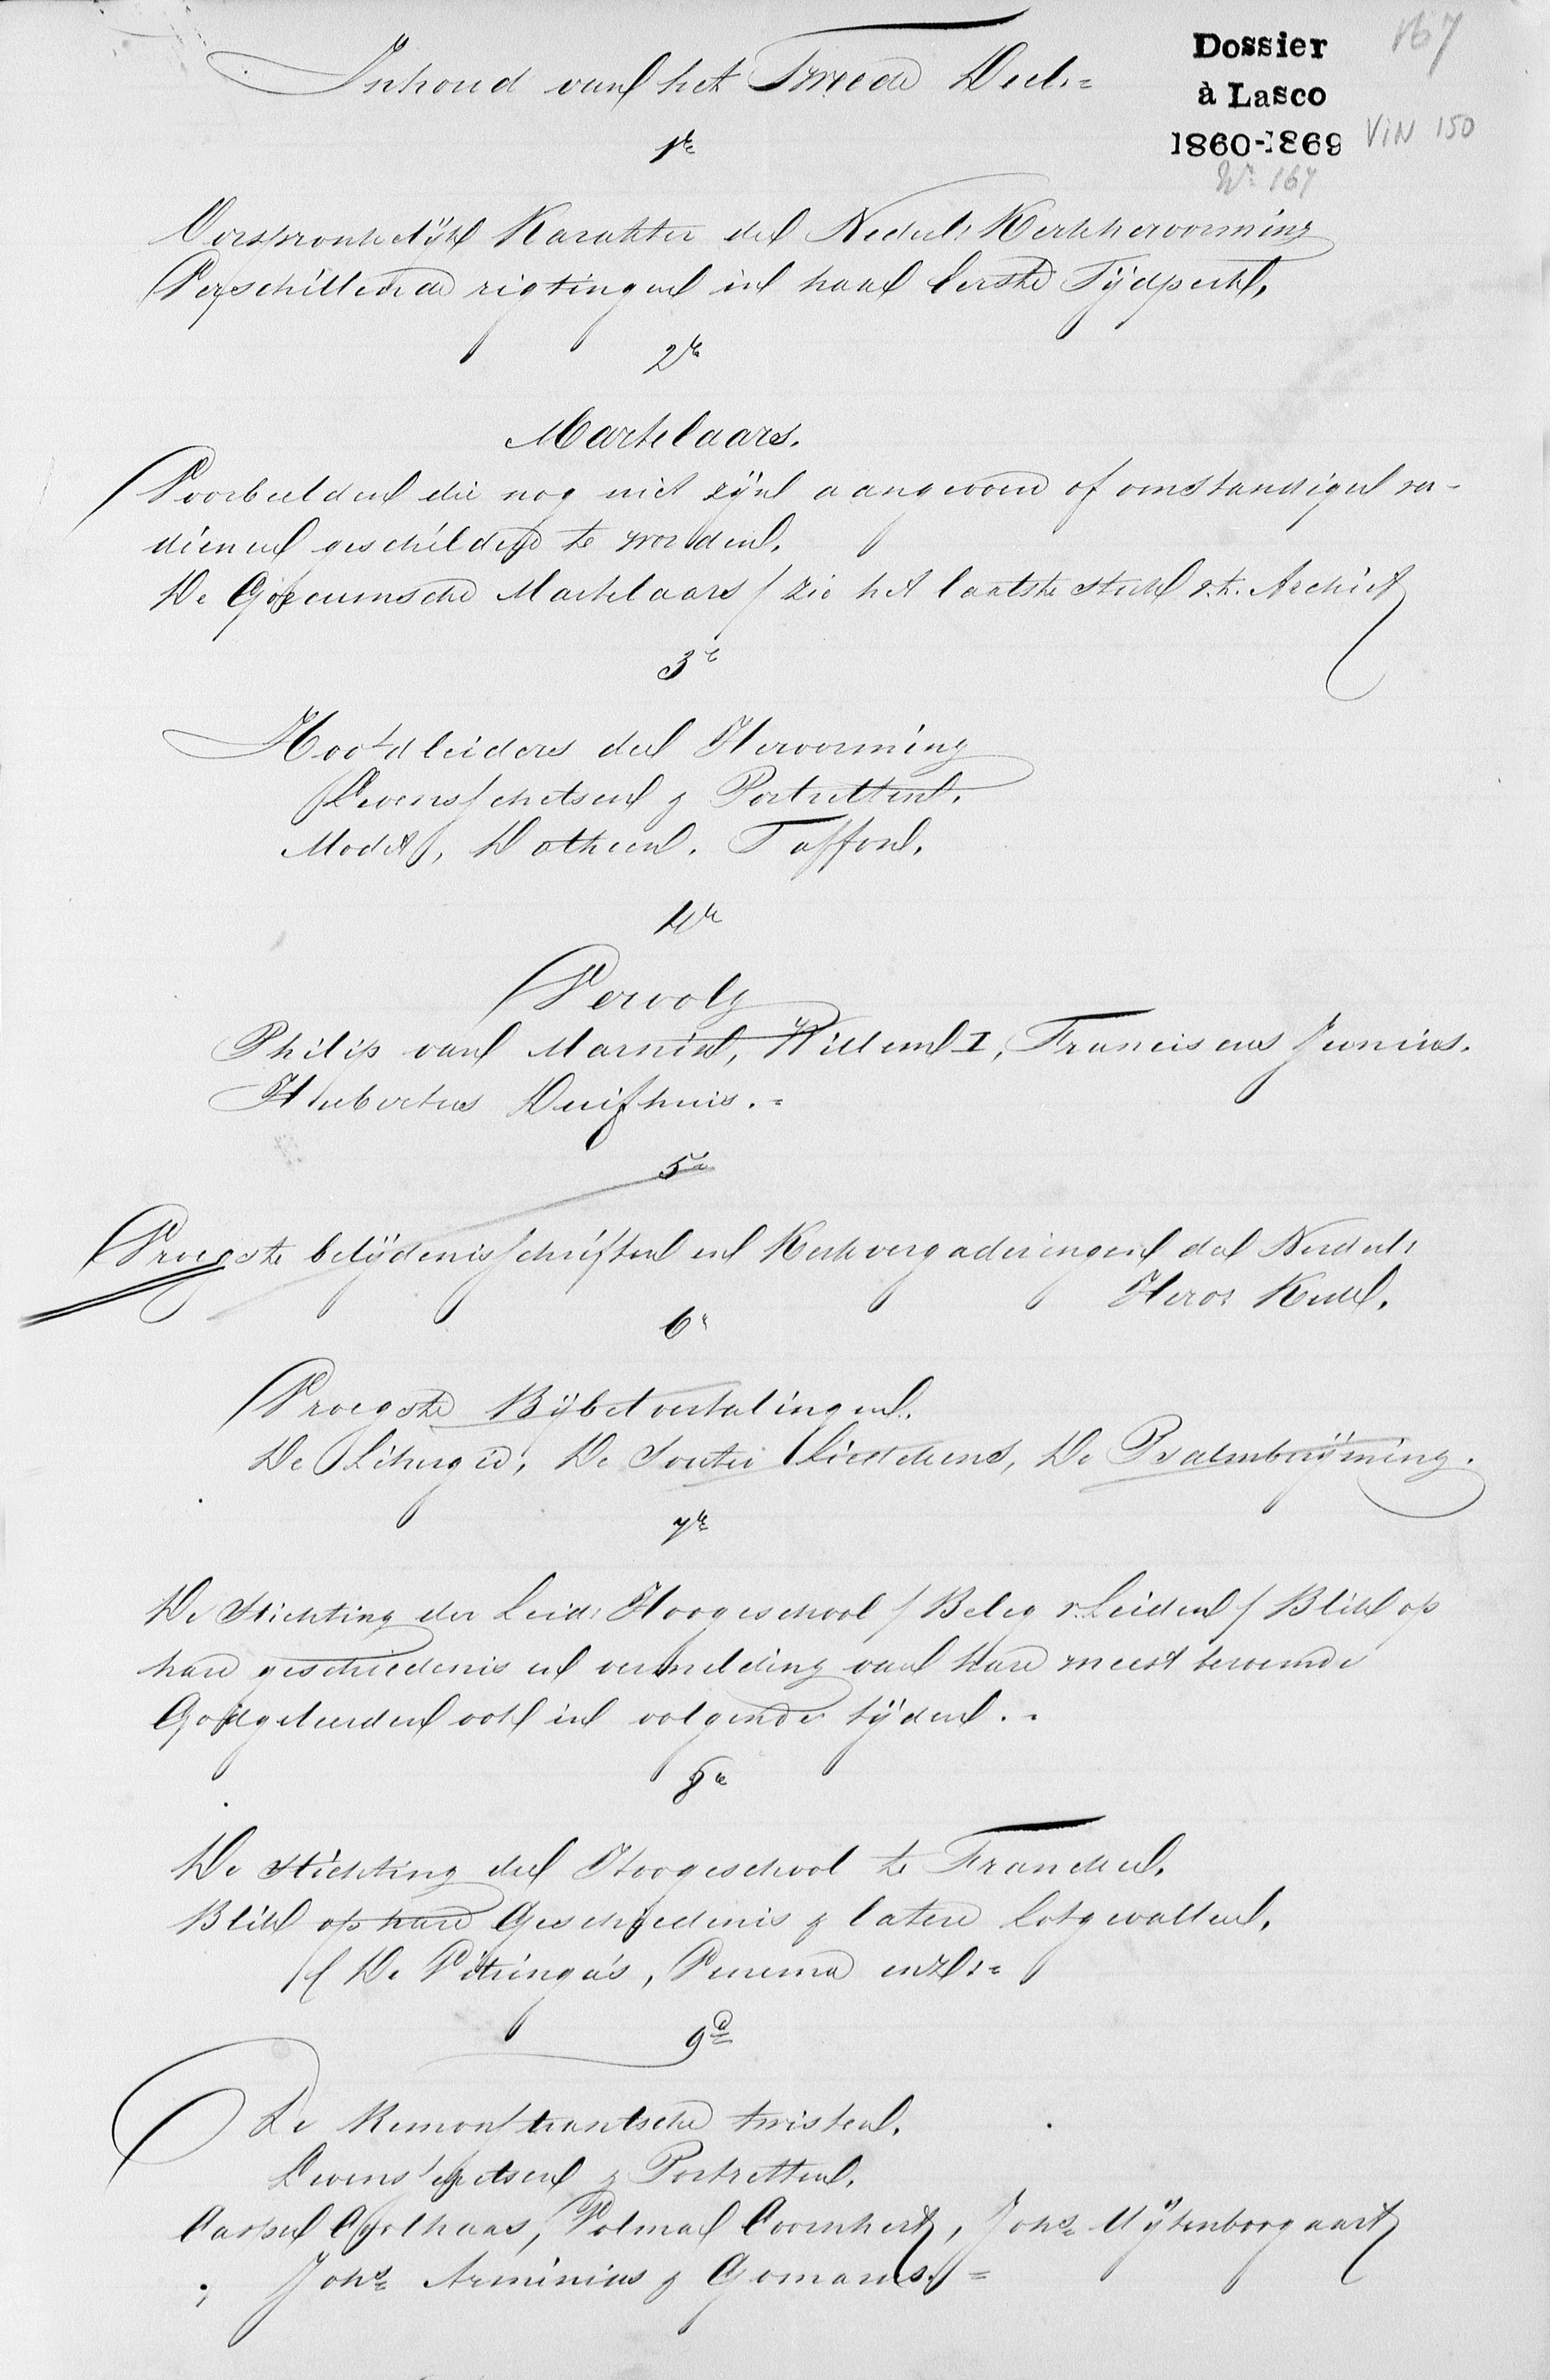 167
Dossier
à Lasco
1860-1869
VIN 150
Nr 167
Inhoud van het Tweede Deel.=
1e
Oorspronkelijk Karakter der Nederl. Kerkhervorming
Verschillende rigtingen in haar Eerste Tijdperk.
2e
Martelaars.
Voorbeelden die nog niet zijn aangevoerd of omstandiger ver-
dienen geschilderd te worden.
De Gorcumsche Martelaars / zie het laatste stuk v.h. Archief
3e
Hoofdleiders der Hervorming
Levensschetsen & Portretten.
Modet, Datheen. Taffin.
4e
Vervolg
Philip van Marnix, Willem I, Franciscus Junius.
Hubertus Duifhuis.=
5e
Vroegste belijdenisschriften en Kerkvergaderingen der Nederl.
Herv. Kerk.
6e
Vroegste Bijbelvertalingen.
De Liturgie, De Souter Liedekens, De Psalmberijming.
7e
De Stichting der Leid. Hoogeschool / Beleg v. Leiden / Blik op
hare geschiedenis en vermelding van hare meest beroemde
Godgeleerden ook in volgende tijden..
8e
De Stichting der Hoogeschool te Franeker.
Blik op hare Geschiedenis & latere Lotgevallen.
( De Vitringa's, Venema enz.=
9e
De Remonstrantsche twisten.
Levensschetsen & Portretten.
Caspar Coolhaas, Volmar Coornhert, Johs Uijtenbogaart
Johs Arminius & Gomarus.=